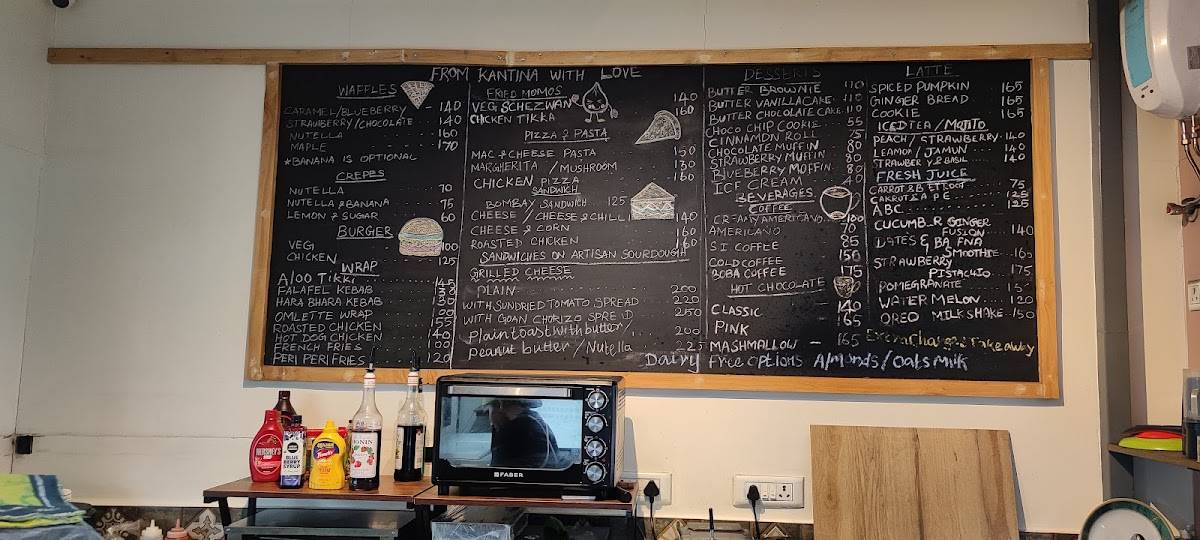 FROM KANTINA WITH LOVE
WAFFLES
CARAMEL/BLUEBERRY - 140
STRAWBERRY/CHOCOLATE 140
NUTELLA 160
MAPLE 170
*BANANA IS OPTIONAL
CREPES
NUTELLA 70
NUTELLA & BANANA 75
LEMON & SUGAR 60
BURGER
VEG 100
CHICKEN 125
WRAP
Aloo Tikki 145
FALAFEL KEBAB
HARA BHARA KEBAB 130
OMLETTE WRAP 100
ROASTED CHICKEN 155
HOT DOG CHICKEN 140
FRENCH FRIES 100
PERI PERI FRIES 120
FRIED MOMOS
VEG SCHEZWAN 140
CHICKEN TIKKA 160
PIZZA & PASTA
MAC & CHEESE PASTA 150
MARGHERITA / MUSHROOM 130
CHICKEN PIZZA 160
SANDWICH
BOMBAY SANDWICH 125
CHEESE / CHEESE & CHILLI 140
CHEESE & CORN 160
ROASTED CHICKEN 160
SANDWICHES ON ARTISAN SOURDOUGH
GRILLED CHEESE
PLAIN 200
WITH SUNDRIED TOMATO SPREAD 220
WITH GOAN CHORIZO SPRE D 250
Plain toast with butter/ 200
Peanut butter / Nutella 225
DESSERTS
BUTTER BROWNIE 110
BUTTER VANILLA CAKE 110
BUTTER CHOCOLATE CAKE 110
CHOCO CHIP COOKIE 55
CINNAMON ROLL 75
CHOCOLATE MUFFIN 80
STRAWBERRY MUFFIN 80
BLUEBERRY MUFFIN 80
ICE CREAM 40
BEVERAGES
COFFEE
CREAMY AMERICANO 100
AMERICANO 70
S.I. COFFEE 85
COLD COFFEE 150
BOBA COFFEE 175
HOT CHOCOLATE
CLASSIC - 140
PINK - 165
MASHMALLOW - 165
LATTE
SPICED PUMPKIN 165
GINGER BREAD 165
COOKIE 165
ICED TEA / MOJITO
PEACH / STRAWBERRY 140
LEAMON / JAMUN 140
STRAWBER Y & BASIL 140
FRESH JUICE
CARROT & B ET ROOT 75
CARROT & A P E 125
ABC 125
CUCUMB R GINGER
FUSION 140
DATES & BA ANA
SMOOTHIE 160
STRAWBERRY
PISTACHIO 175
POMEGRANATE
WATER MELON 120
OREO MILKSHAKE 150
Extra charge Takeaway
Dairy free options Almonds/Oats Milk
HERSHEY'S
BLUE BERRY SYRUP
MONIN
FABER